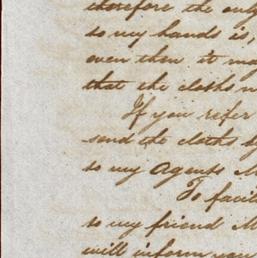 therefore the only
to my hands is,
even then it may
that the cloths
If you refer
send the cloths by
to my Agents
To facil
to my friend M
will inform you